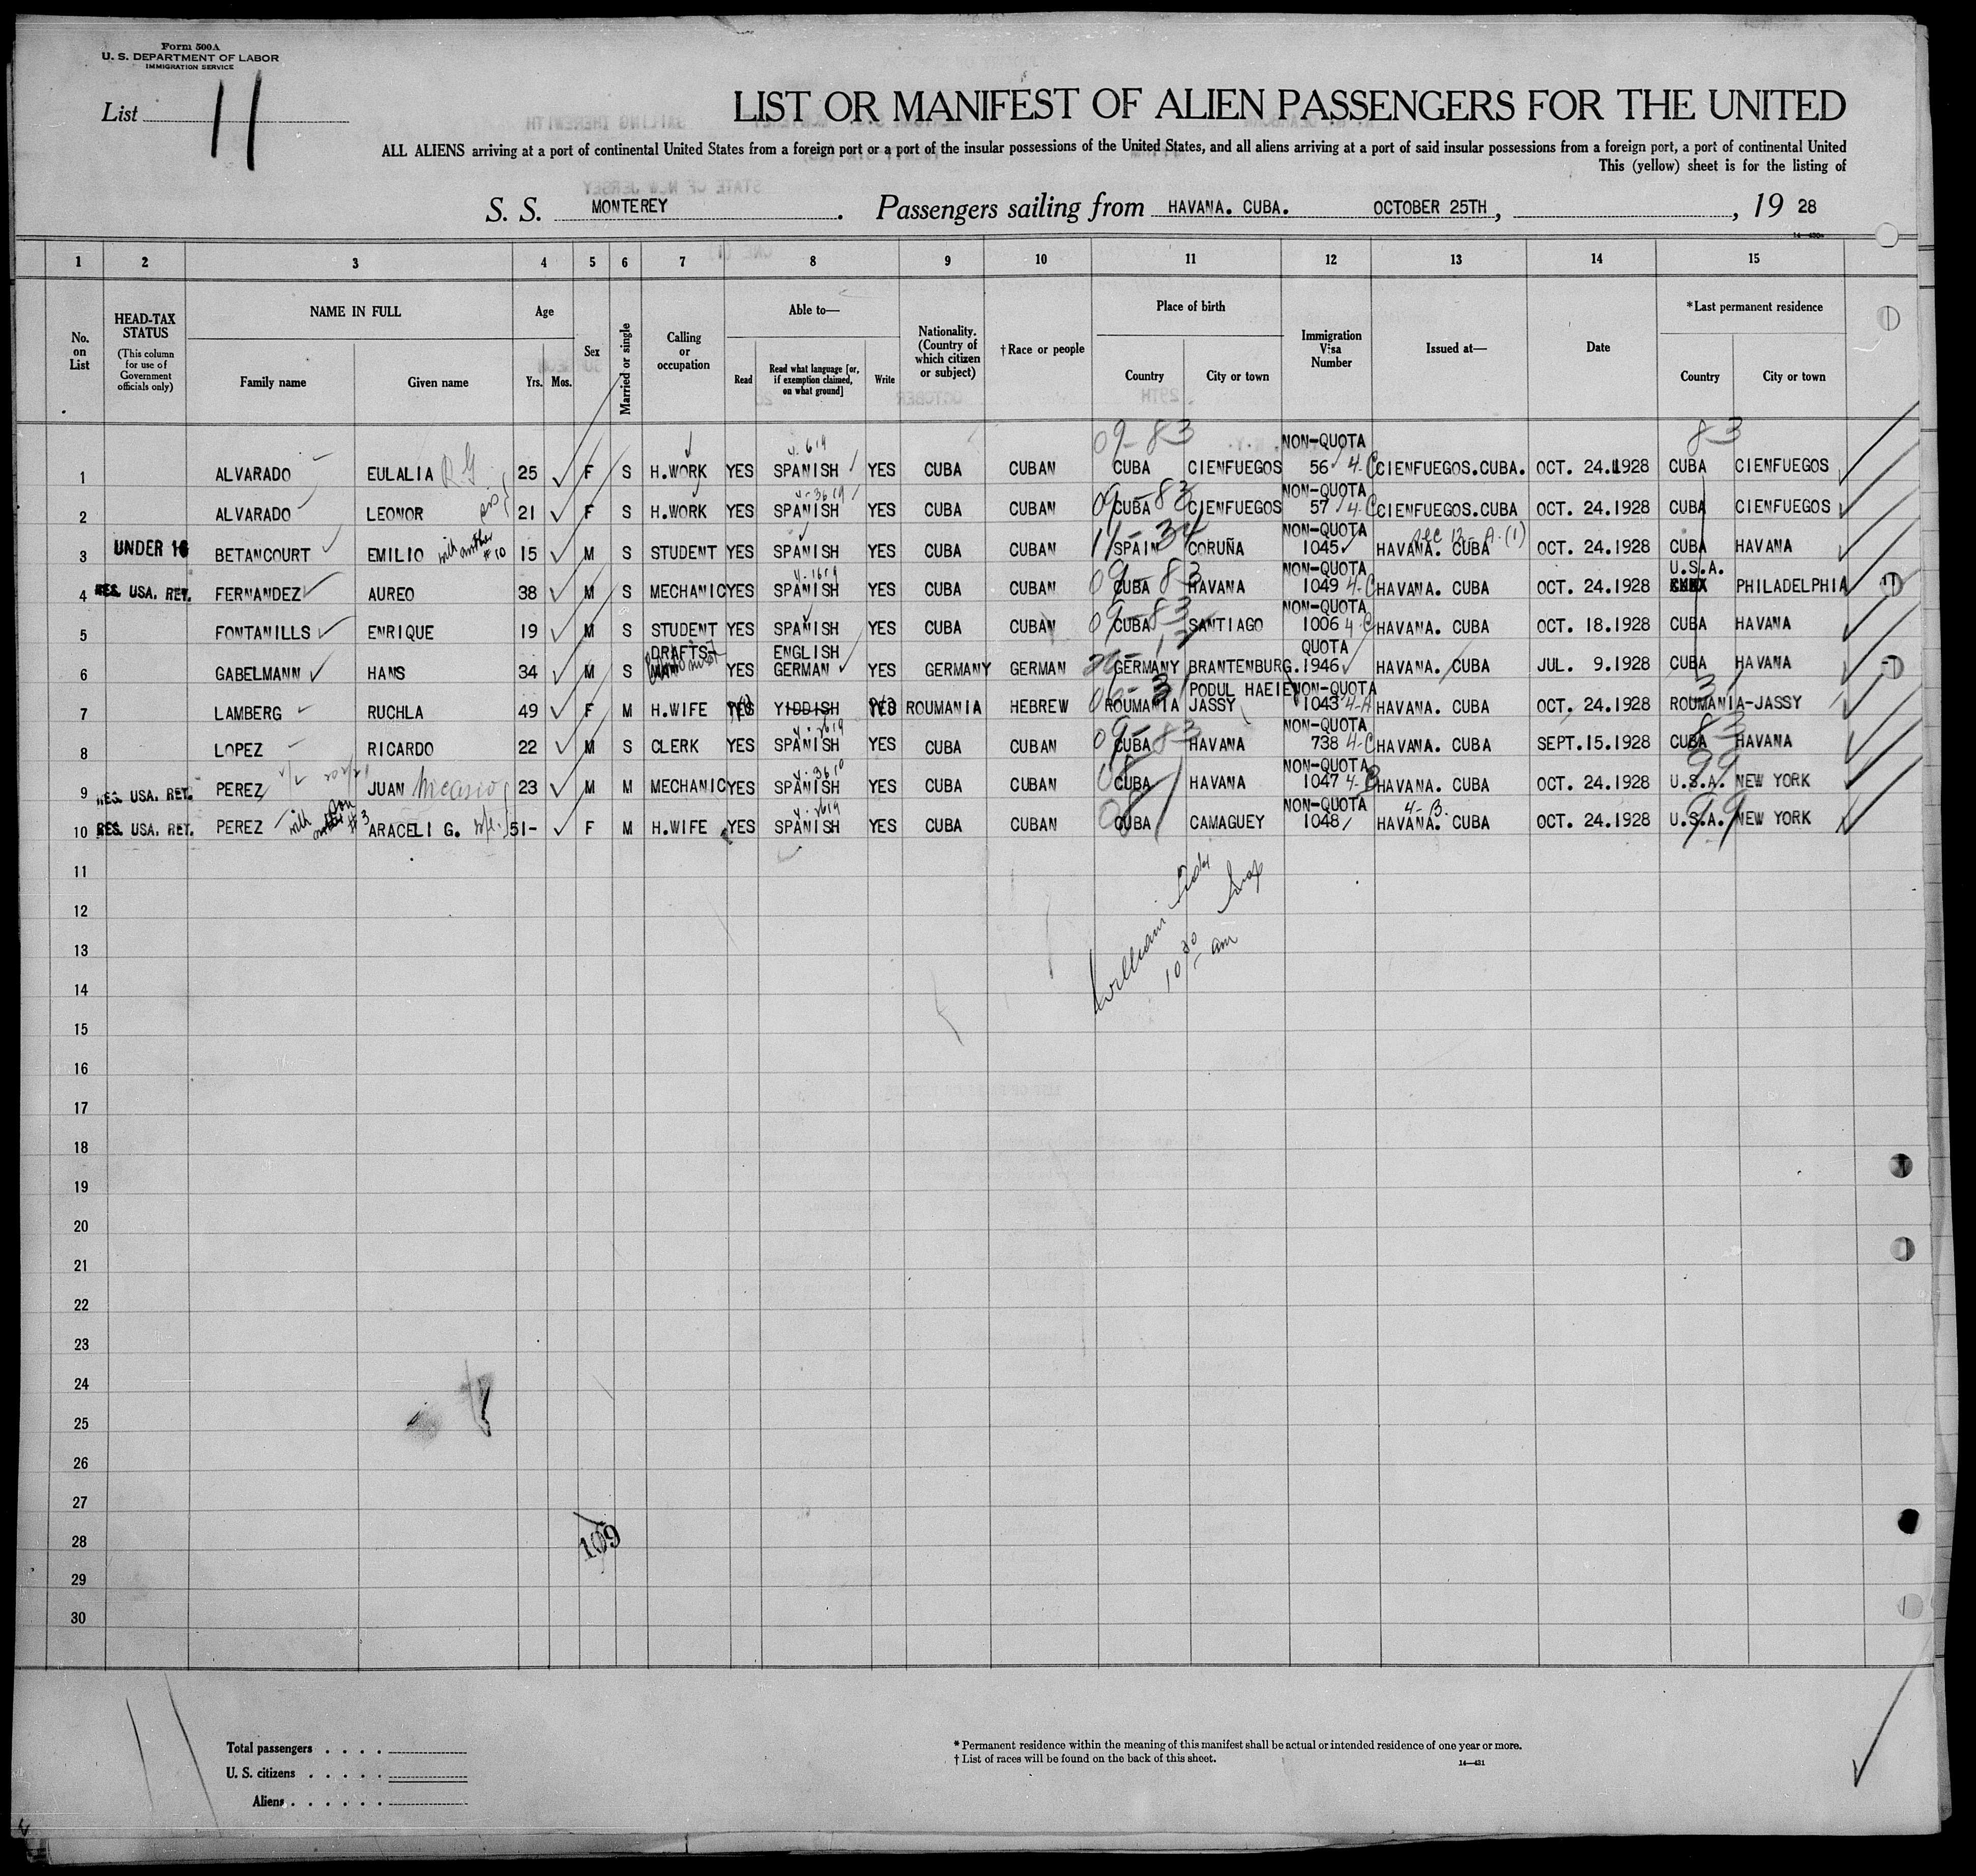 Form 500A
U. S. DEPARTMENT OF LABOR
IMMIGRATION SERVICE
List 11
LIST OR MANIFEST OF ALIEN PASSENGERS FOR THE UNITED
ALL ALIENS arriving at a port of continental United States from a foreign port or a port of the insular possessions of the United States, and all aliens arriving at a port of said insular possessions from a foreign port, a port of continental United
This (yellow) sheet is for the listing of
S. S. MONTEREY. Passengers sailing from HAVANA. CUBA. OCTOBER 25TH, , 19 28
1 2 3 4 5 6 7 8 9 10 11 12 13 14 15
No. on List
HEAD-TAX STATUS (This column for use of Government officials only)
NAME IN FULL
Family name Given name
Age
Yrs. Mos.
Sex
Married or single
Calling or occupation
Able to—
Read Read what language [or, if exemption claimed, on what ground] Write
Nationality. (Country of which citizen or subject)
†Race or people
Place of birth
Country City or town
Immigration Visa Number
Issued at—
Date
*Last permanent residence
Country City or town
09-83 NON-QUOTA 83
1 ALVARADO EULALIA 25 F S H.WORK YES SPANISH YES CUBA CUBAN CUBA CIENFUEGOS 56 4-C CIENFUEGOS.CUBA. OCT. 24.1928 CUBA CIENFUEGOS
09-83 NON-QUOTA
2 ALVARADO LEONOR 21 F S H.WORK YES SPANISH YES CUBA CUBAN CUBA CIENFUEGOS 57 4-C CIENFUEGOS.CUBA OCT. 24.1928 CUBA CIENFUEGOS
NON-QUOTA Sec 13-A.(1)
3 UNDER 16 BETANCOURT EMILIO with mother #10 15 M S STUDENT YES SPANISH YES CUBA CUBAN SPAIN CORUÑA 1045 HAVANA. CUBA OCT. 24.1928 CUBA HAVANA
09-83 NON-QUOTA U.S.A.
4 RES. USA. RET. FERNANDEZ AUREO 38 M S MECHANIC YES SPANISH YES CUBA CUBAN CUBA HAVANA 1049 4-C HAVANA. CUBA OCT. 24.1928 PHILADELPHIA
09-83 NON-QUOTA
5 FONTANILLS ENRIQUE 19 M S STUDENT YES SPANISH YES CUBA CUBAN CUBA SANTIAGO 1006 4-C HAVANA. CUBA OCT. 18.1928 CUBA HAVANA
DRAFTS- ENGLISH QUOTA
6 GABELMANN HANS 34 M S MAN YES GERMAN YES GERMANY GERMAN GERMANY BRANTENBURG. 1946 HAVANA. CUBA JUL. 9.1928 CUBA HAVANA
PODUL HAEIE NON-QUOTA
7 LAMBERG RUCHLA 49 F M H.WIFE YES YIDDISH YES ROUMANIA HEBREW ROUMANIA JASSY 1043 4-A HAVANA. CUBA OCT. 24.1928 ROUMANIA-JASSY
09-83 NON-QUOTA 83
8 LOPEZ RICARDO 22 M S CLERK YES SPANISH YES CUBA CUBAN CUBA HAVANA 738 4-C HAVANA. CUBA SEPT.15.1928 CUBA HAVANA
NON-QUOTA 99
9 RES. USA. RET. PEREZ JUAN 23 M M MECHANIC YES SPANISH YES CUBA CUBAN CUBA HAVANA 1047 4-B HAVANA. CUBA OCT. 24.1928 U.S.A. NEW YORK
NON-QUOTA 4-B. 99
10 RES. USA. RET. PEREZ with son #3 ARACELI G. 51- F M H.WIFE YES SPANISH YES CUBA CUBAN CUBA CAMAGUEY 1048 HAVANA. CUBA OCT. 24.1928 U.S.A. NEW YORK
11
12
William
13
10 30 am
14
15
16
17
18
19
20
21
22
23
24
25
26
27
28
109
29
30
Total passengers . . . .
U. S. citizens . . . . .
Aliens . . . . . .
* Permanent residence within the meaning of this manifest shall be actual or intended residence of one year or more.
† List of races will be found on the back of this sheet.
14—431